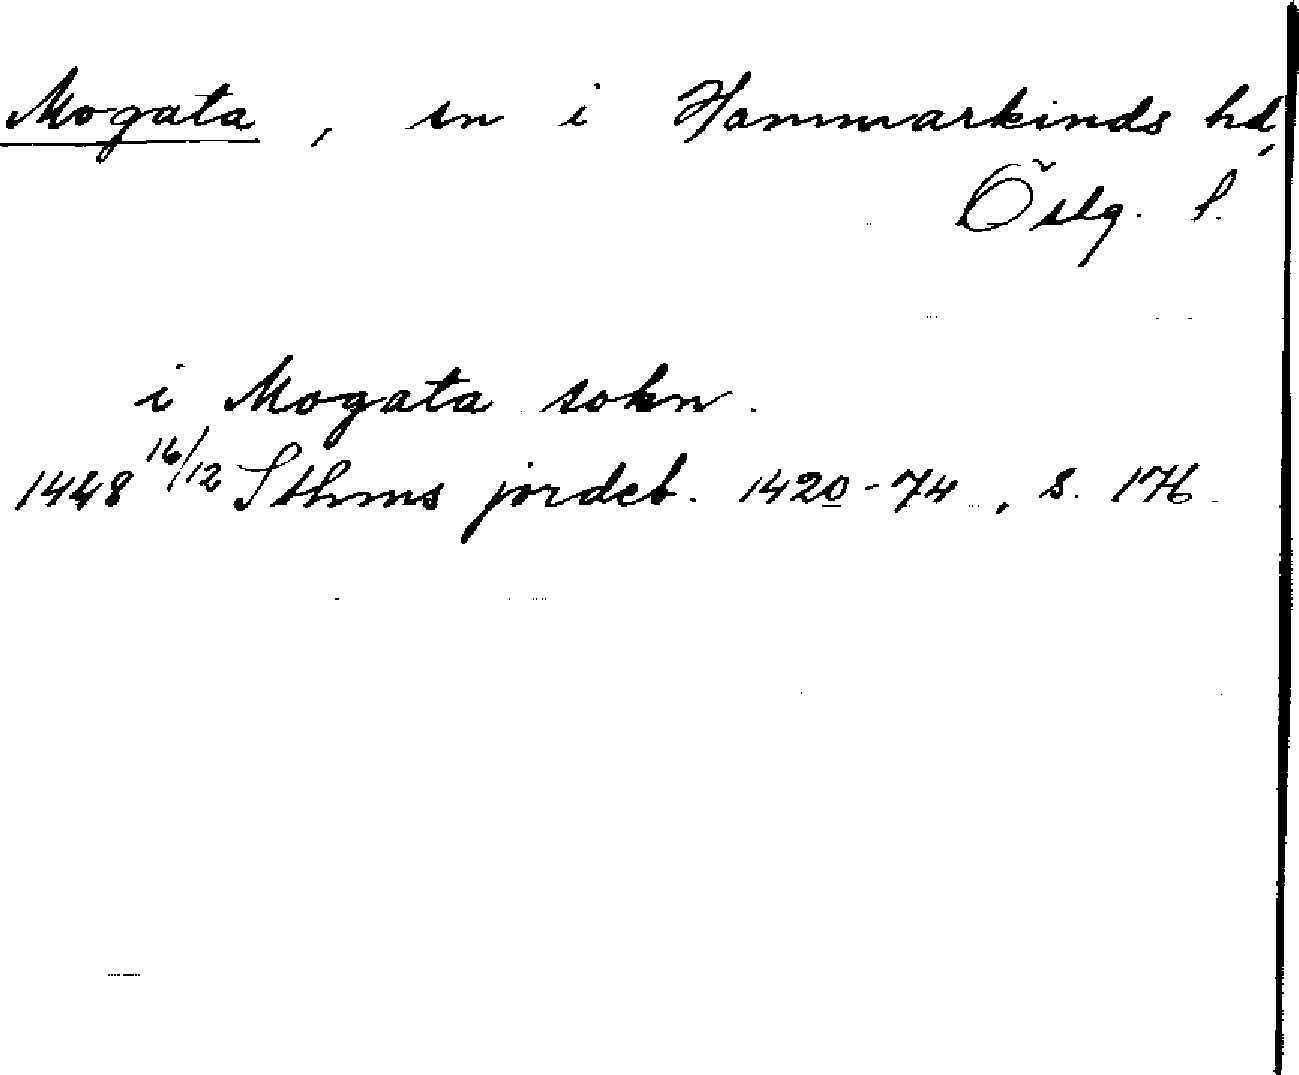 Mogata, sn i Hammarkinds hd,
Östg. l.
i Mogata sokn.
1448 16/12 Sthms jordeb. 1420-74, s. 176